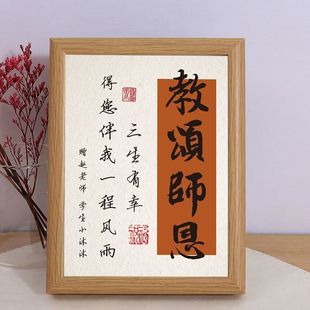 教頌師恩
三生有幸
得您伴我一程风雨
赠赵老师 学生小沐沐